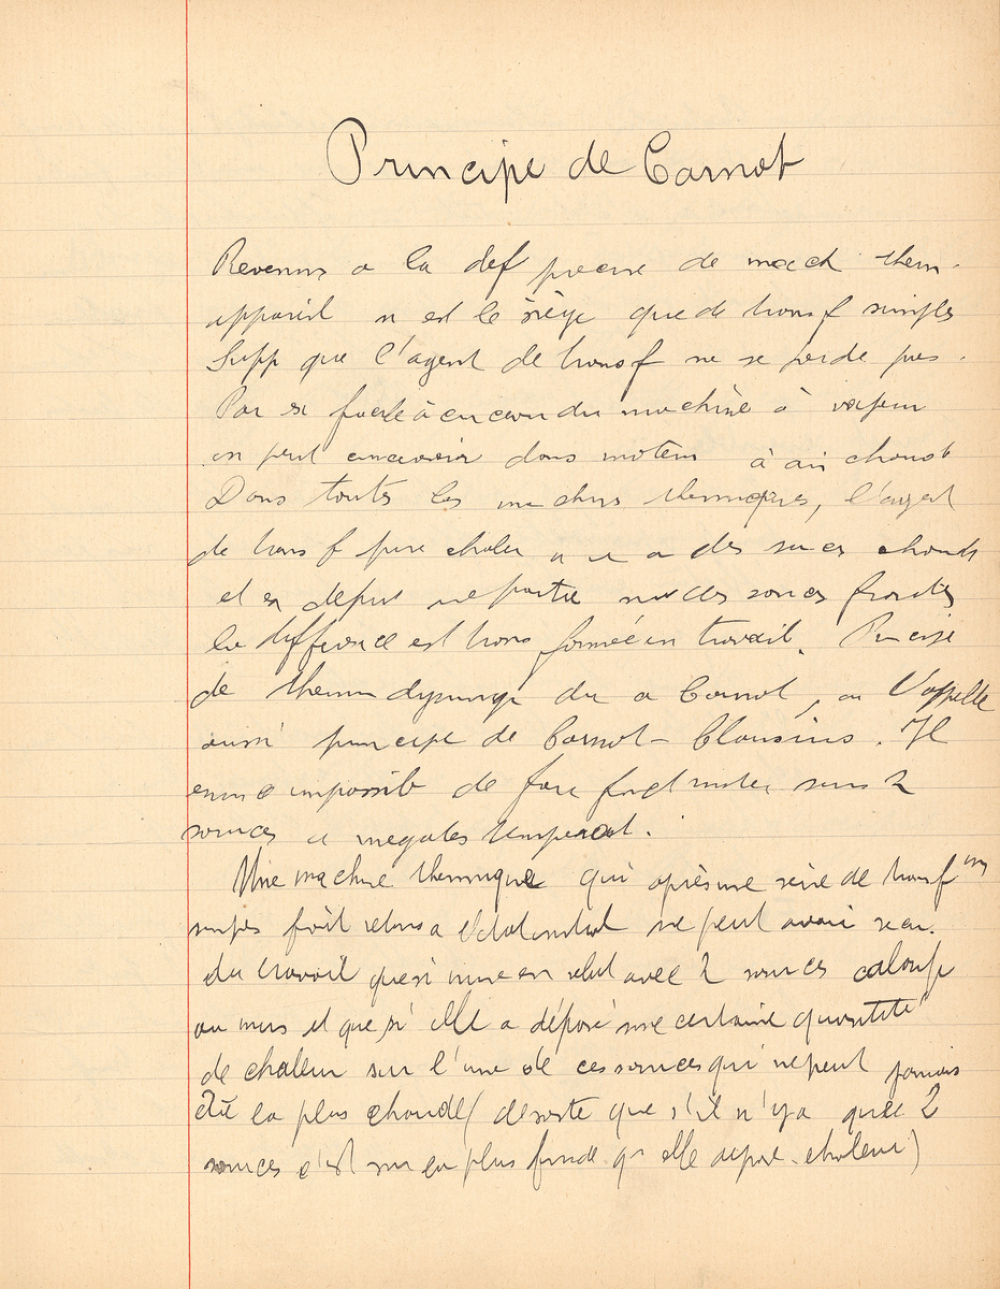 Principe de Carnot
Revenons a la def precise de mach them.
appareil n est le siège que de transf simples
Supp que l'agent de transf ne se perde pas.
Pas si facile à concevoir du machine à vapeur
on peut concevoir dans moteur à air chaud
Dans toutes les machins thermiques, l'agent
de transf puise chaleur a des sources chauds
et en depose une partie sur des sources froides
la difference est transformée en travail. Principe
de thermodynamiq du a Carnot, on l'appelle
aussi principe de Carnot-Clausius. Il
enonce impossib de faire fonct moteur sans 2
sources a inegales temperat.
Une machine thermique qui après une serie de transf ons
simples fait retour a l'etat initial ne peut avoir
du travail que si mise en relat avec 2 sources calorifi
au moins et que si elle a déposé une certaine quantité
de chaleur sur l'une de ces sources qui ne peut jamais
être la plus chaude (de sorte que s'il n'y a que 2
sources c'est sur la plus froide q elle depose chaleur)